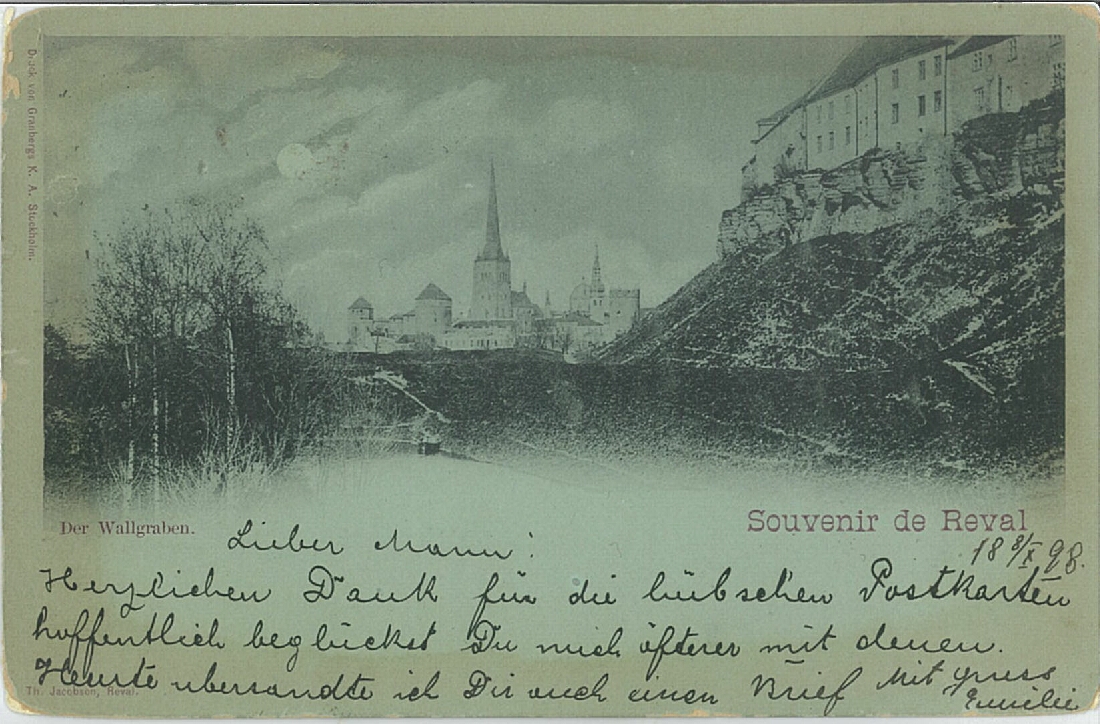 Druck von Granbergs K. A. Stockholm.
Der Wallgraben.
Souvenir de Reval
18 8/X 98.
Lieber Mann!
Herzlichen Dank für die hübschen Postkarten
hoffentlich beglückst Du mich öfterer mit denen.
Heute übersandte ich Dir auch einen Brief Mit gruss
Emilie
Th. Jacobson, Reval.